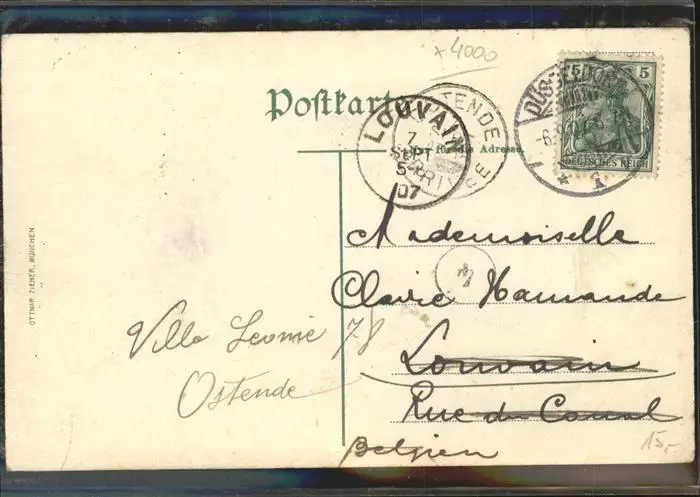 × 4000
Postkarte
für die Adresse
LOUVAIN
7
SEPT
5-
07
OSTENDE
DÜSSELDORF
5
DEUTSCHES REICH
Mademoiselle
Claire Hamande
Louvain
Rue du Canal
Belgien
Villa Leonie 78
Ostende
OTTMAR ZIEHER, MÜNCHEN.
15,-